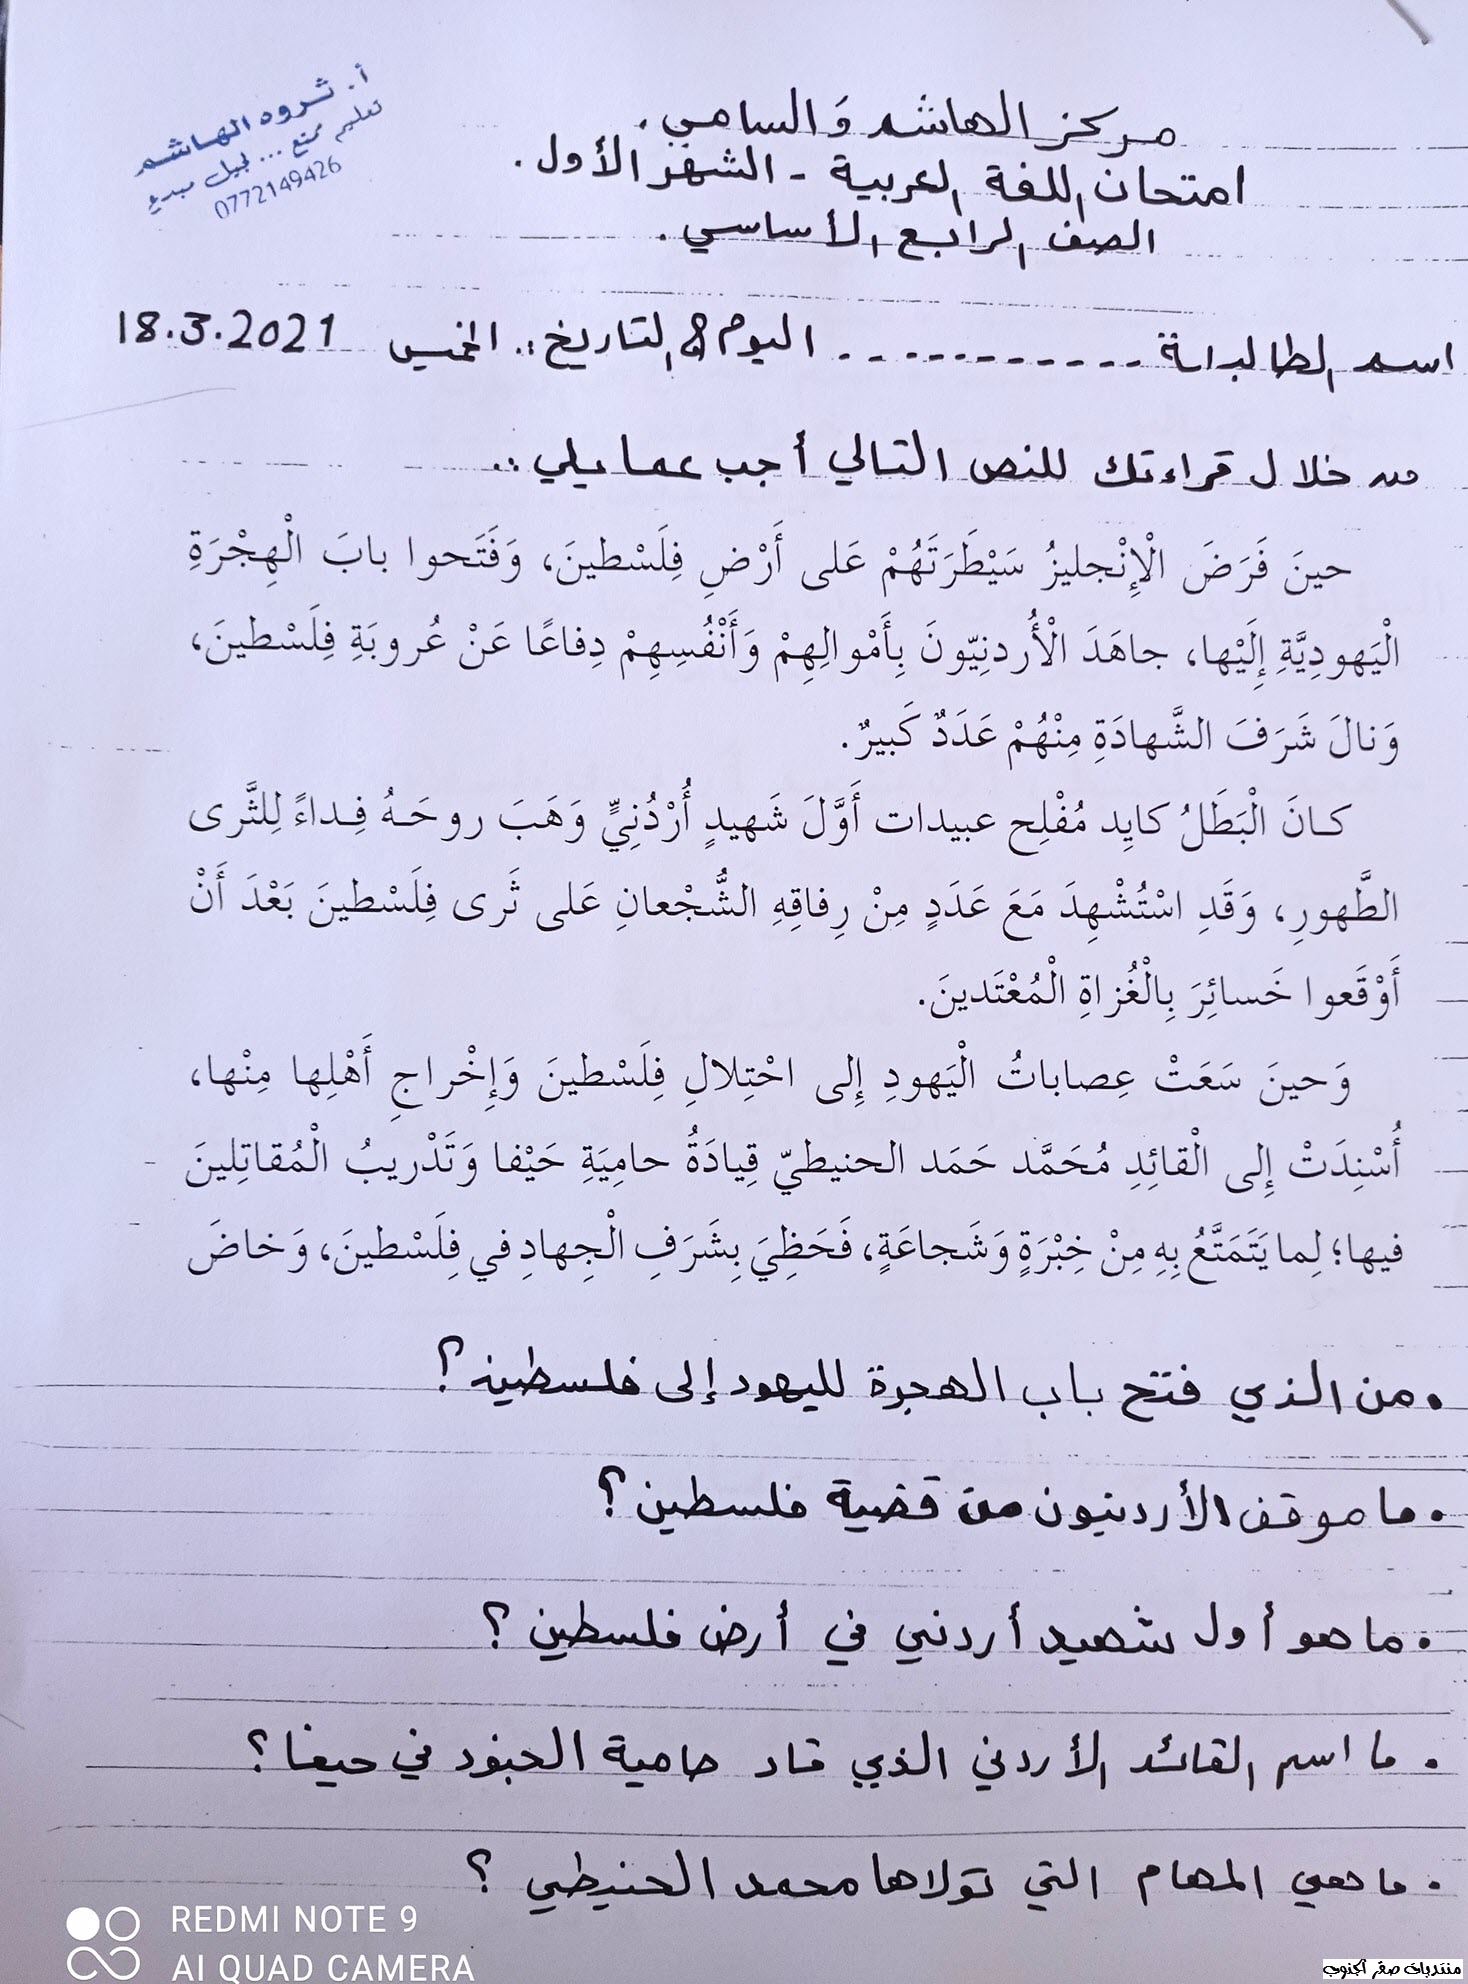 أ. ثروه الهاشم
تعليم ممتع ... لجيل مبدع
0772149426
مركز الهاشم والسامي.
امتحان اللغة العربية - الشهر الأول.
الصف الرابع الأساسي.
اسم الطالب/ة ------------ اليوم & التاريخ:. الخميس 18.3.2021
من خلال قراءتك للنص التالي أجب عما يلي:.
حينَ فَرَضَ الْإِنْجليزُ سَيْطَرَتَهُمْ عَلى أَرْضِ فِلَسْطينَ، وَفَتَحوا بابَ الْهِجْرَةِ
الْيَهودِيَّةِ إِلَيْها، جاهَدَ الْأُردنِيّونَ بِأَمْوالِهِمْ وَأَنْفُسِهِمْ دِفاعًا عَنْ عُروبَةِ فِلَسْطينَ،
وَنالَ شَرَفَ الشَّهادَةِ مِنْهُمْ عَدَدٌ كَبيرٌ.
كـانَ الْبَطَلُ كايِد مُفْلِح عبيدات أَوَّلَ شَهيدٍ أُرْدُنِيٍّ وَهَبَ روحَـهُ فِـداءً لِلثَّرى
الطَّهورِ، وَقَدِ اسْتُشْهِدَ مَعَ عَدَدٍ مِنْ رِفاقِهِ الشُّجْعانِ عَلى ثَرى فِلَسْطينَ بَعْدَ أَنْ
أَوْقَعوا خَسائِرَ بِالْغُزاةِ الْمُعْتَدينَ.
وَحينَ سَعَتْ عِصاباتُ الْيَهودِ إِلى احْتِلالِ فِلَسْطينَ وَإِخْراجِ أَهْلِها مِنْها،
أُسْنِدَتْ إِلى الْقائِدِ مُحَمَّد حَمَد الحنيطيّ قِيادَةُ حامِيَةِ حَيْفا وَتَدْريبُ الْمُقاتِلينَ
فيها؛ لِما يَتَمَتَّعُ بِهِ مِنْ خِبْرَةٍ وَشَجاعَةٍ، فَحَظِيَ بِشَرَفِ الْجِهادِ في فِلَسْطينَ، وَخاضَ
• من الذي فتح باب الهجرة لليهود إلى فلسطين؟
• ما موقف الأردنيون من قضية فلسطين؟
• ما هو أول شهيد أردني في أرض فلسطين؟
• ما اسم القائد الأردني الذي قاد حامية الجنود في حيفا؟
• ما هي المهام التي تولاها محمد الحنيطي؟
REDMI NOTE 9
AI QUAD CAMERA
منتديات صقر الجنوب